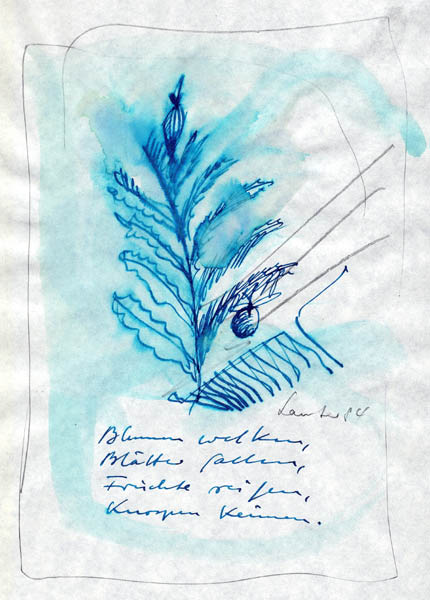 84
Blumen welken,
Blätter fallen,
Früchte reifen,
Knospen keimen.